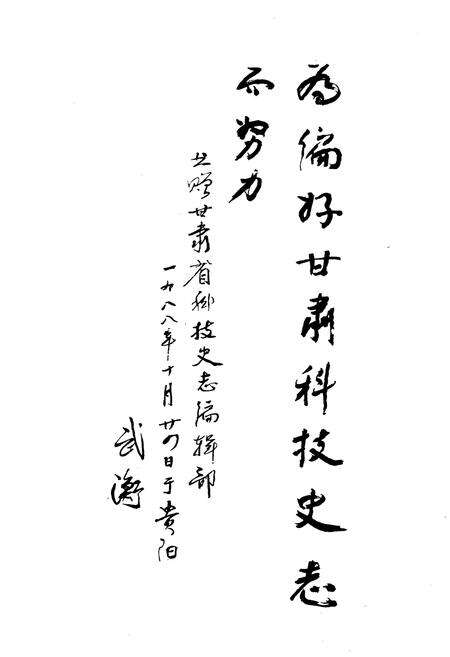 為编好甘肃科技史志
而努力
书赠甘肃省科技史志编辑部
一九八八年十月廿四日于贵阳
武衡